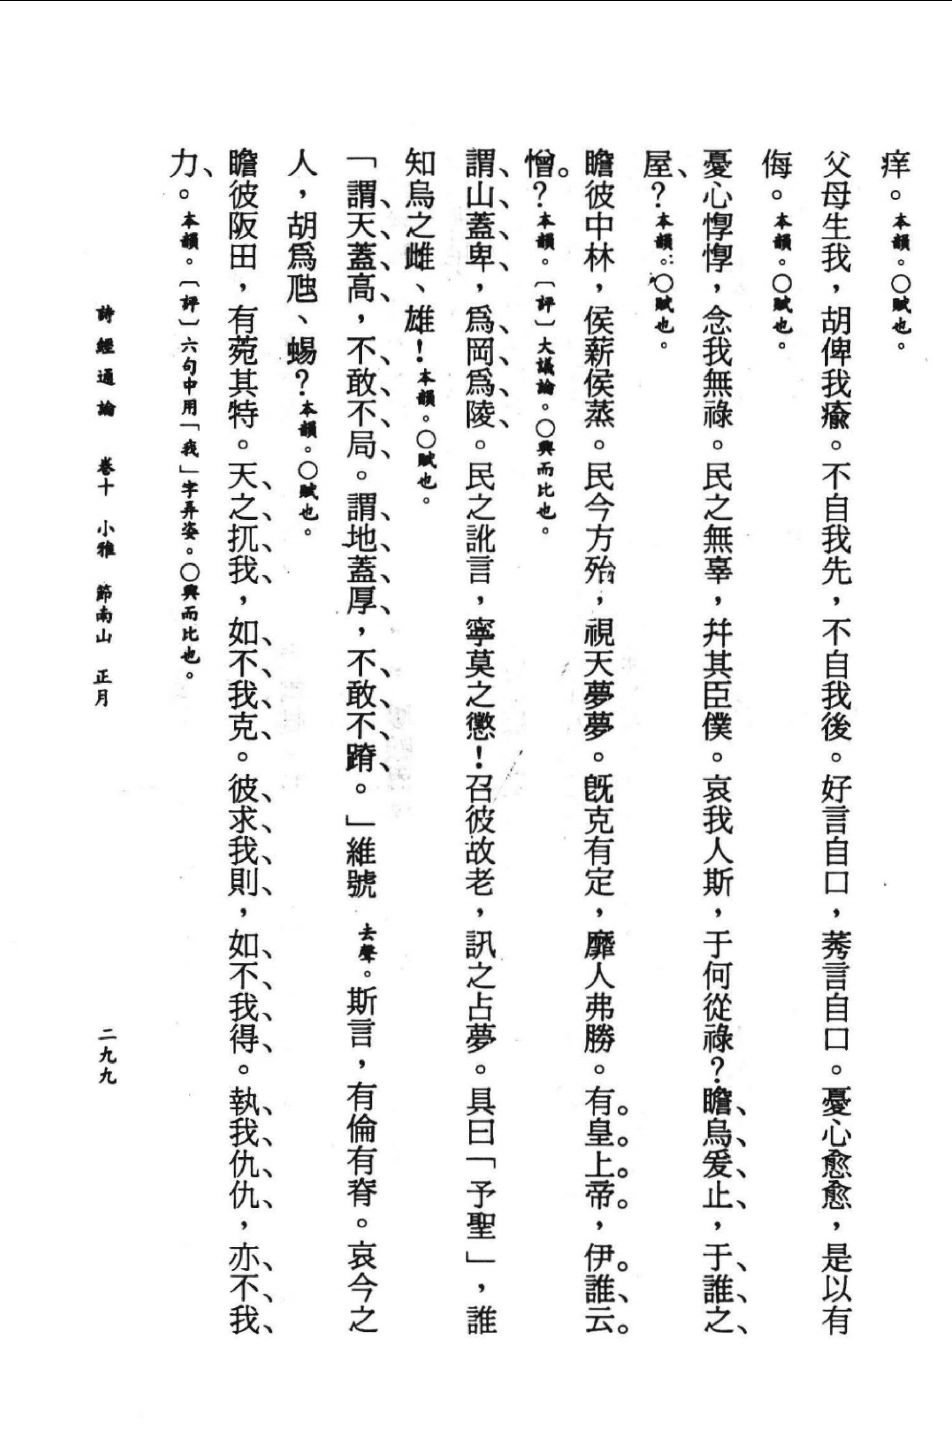 痒。本韻。○賦也。
父母生我，胡俾我瘉。不自我先，不自我後。好言自口，莠言自口。憂心愈愈，是以有
侮。本韻。○賦也。
憂心惸惸，念我無祿。民之無辜，幷其臣僕。哀我人斯，于何從祿？瞻烏爰止，于誰之
屋？本韻。○賦也。
瞻彼中林，侯薪侯蒸。民今方殆，視天夢夢。旣克有定，靡人弗勝。有皇上帝，伊誰云
憎？本韻。〔評〕大議論。○興而比也。
謂山蓋卑，爲岡爲陵。民之訛言，寧莫之懲！召彼故老，訊之占夢。具曰「予聖」，誰
知烏之雌、雄！本韻。○賦也。
「謂天蓋高，不敢不局。謂地蓋厚，不敢不蹐。」維號去聲。斯言，有倫有脊。哀今之
人，胡爲虺、蜴？本韻。○賦也。
瞻彼阪田，有菀其特。天之扤我，如不我克。彼求我則，如不我得。執我仇仇，亦不我
力。本韻。〔評〕六句中用「我」字弄姿。○興而比也。
詩經通論　卷十　小雅　節南山　正月
二九九